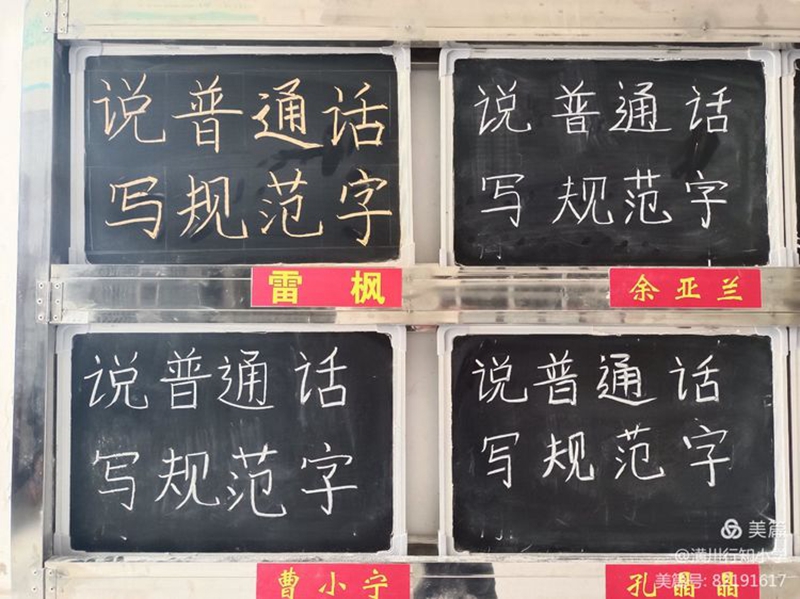 说普通话
写规范字
雷枫
说普通话
写规范字
余亚兰
说普通话
写规范字
曹小宁
说普通话
写规范字
孔晶晶
美篇
@潢川行知小学
美篇号: 82191617